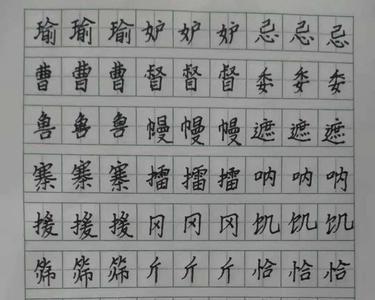 瑜瑜瑜妒妒妒忌忌忌
曹曹曹督督督委委委
鲁鲁鲁幔幔幔遮遮遮
寨寨寨擂擂擂呐呐呐
援援援冈冈冈饥饥饥
筛筛筛斤斤斤恰恰恰